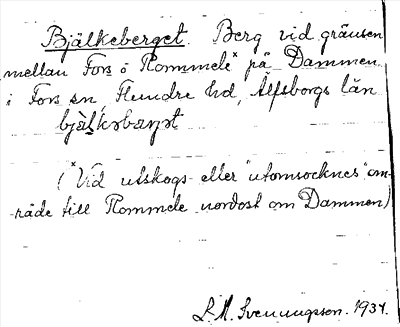 Bjälkeberget. Berg vid gränsen
mellan Fors o Rommele* på Dammen
i Fors sn, Flundre hd, Älfsborgs län
(*Vid utskogs- eller "utomsocknes" om-
råde till Rommele nordost om Dammen)
1934.